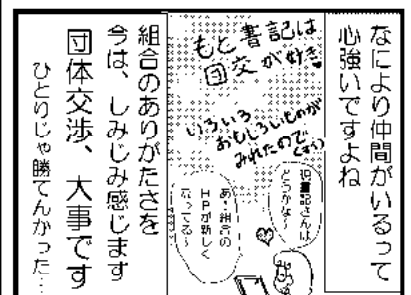 なにより仲間がいるって
心強いですよね
もと書記は
団交が好き
いろいろ
おもしろいものが
みれたので
祝書記さんは
どうかな~
あ、組合の
HPが新しく
なってる~
組合のありがたさを
今は、しみじみ感じます
団体交渉、大事です
ひとりじゃ勝てんかった…